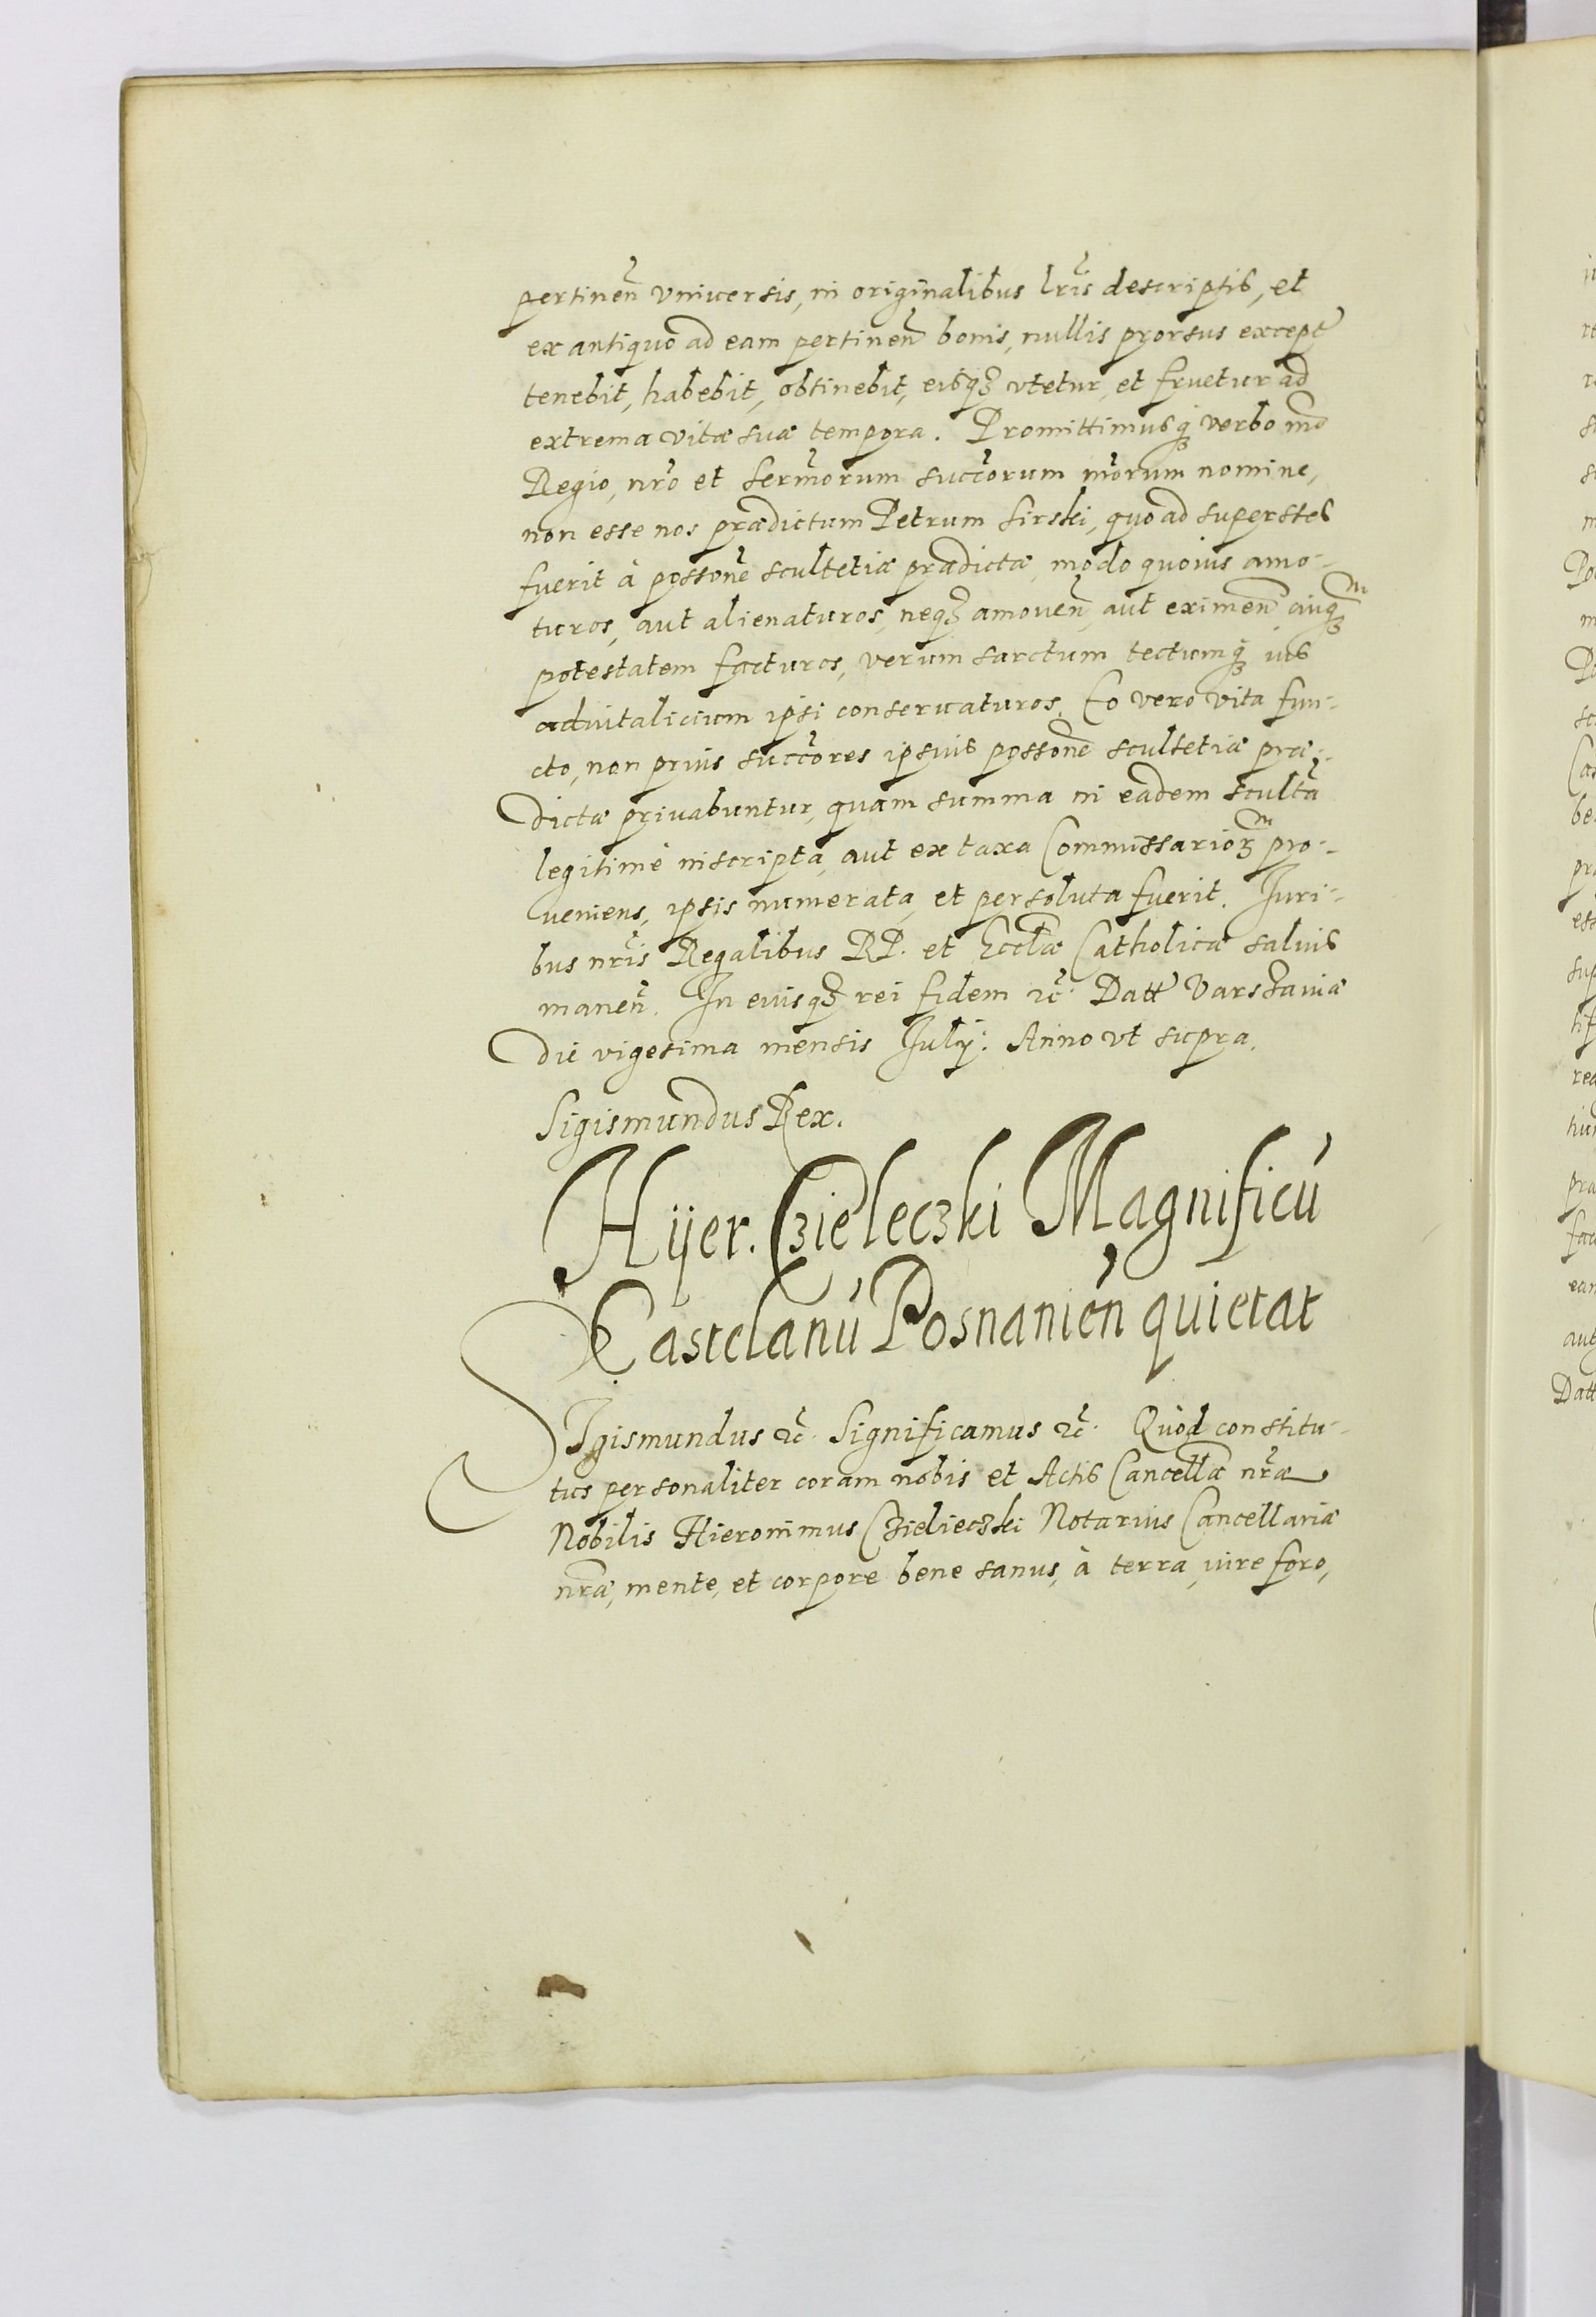 pertineñ vniuersis, in originalibus lr̃is descriptis, et
ex antiquo ad eam pertineñ bonis, nullis prorsus except
tenebit, habebit, obtinebit, eisq₃ vtetur, et fruetur ad
extrema vitæ suæ tempora. Promittimusq₃ verbo nr̃o
Regio, nr̃o et Serm̃orum succ̃orum nr̃orum nomine,
non esse nos prædictum Petrum Sirski, quoad superstes
fuerit à possoñe scultetiæ prædictæ, modo quouis amo-
turos, aut alienaturos, neq₃ amoueñ, aut eximeñ cuiq₃m
potestatem facturos, verum sarctum tectumq₃ ius
aduitalicium ipsi conseruaturos. Eo vero vita fun-
cto, non prius succ̃ores ipsius possoñe scultetiæ præ-
dictæ priuabuntur, quam summa in eadem scultã
legitimè inscripta, aut ex taxa Commissarioꝝm pro-
ueniens, ipsis numerata, et persoluta fuerit. Iuri-
bus nr̃is Regalibus RP. et Eccl̃æ Catholicæ saluis
maneñ. In cuius q₃ rei fidem ꝛc̃. Datt Varsauiæ
die vigesima mensis Iulij: Anno vt supra.
Sigismundus Rex.
Hÿer. Czieleczki Magnificú
Castelanú Posnanień quietat
SIgismundus ꝛc̃. Significamus ꝛc̃. Quod constitu-
tus personaliter coram nobis et Actis Cancell̃æ nr̃æ
Nobilis Hieronimus Czielieczki Notarius Cancellariæ
nr̃æ, mente, et corpore bene sanus, à terra, iure foro,